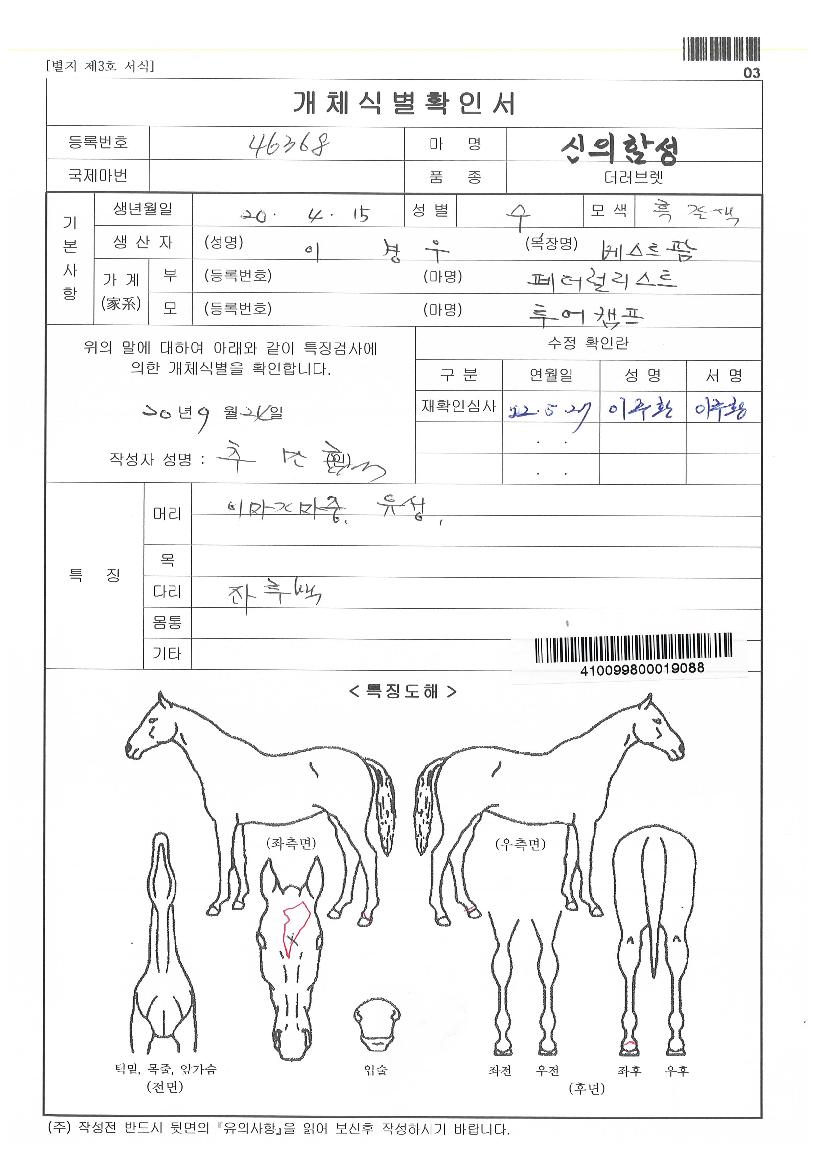 [별지 제3호 서식]
03
개체식별확인서
등록번호 46368 마 명 신의함성
국제마번 품 종 더러브렛
기본사항
생년월일 20. 4. 15 성별 수 모색 흑갈색
생산자 (성명) 이경우 (목장명) 베스트팜
가계 (家系) 부 (등록번호) (마명) 페더럴리스트
모 (등록번호) (마명) 투어캠프
위의 말에 대하여 아래와 같이 특징검사에
의한 개체식별을 확인합니다.
20년 9월 24일
작성사 성명 : (인)
수정 확인란
구 분 연월일 성 명 서 명
재확인심사 22. 5. 27
특 징
머리 이마가마중, 유성,
목
다리 좌후백
몸통
기타
410099800019088
< 특징도해 >
(좌측면) (우측면)
턱밑, 목줄, 앞가슴
(전면)
입술
좌전 우전 좌후 우후
(후면)
(주) 작성전 반드시 뒷면의 『유의사항』을 읽어 보신후 작성하시기 바랍니다.